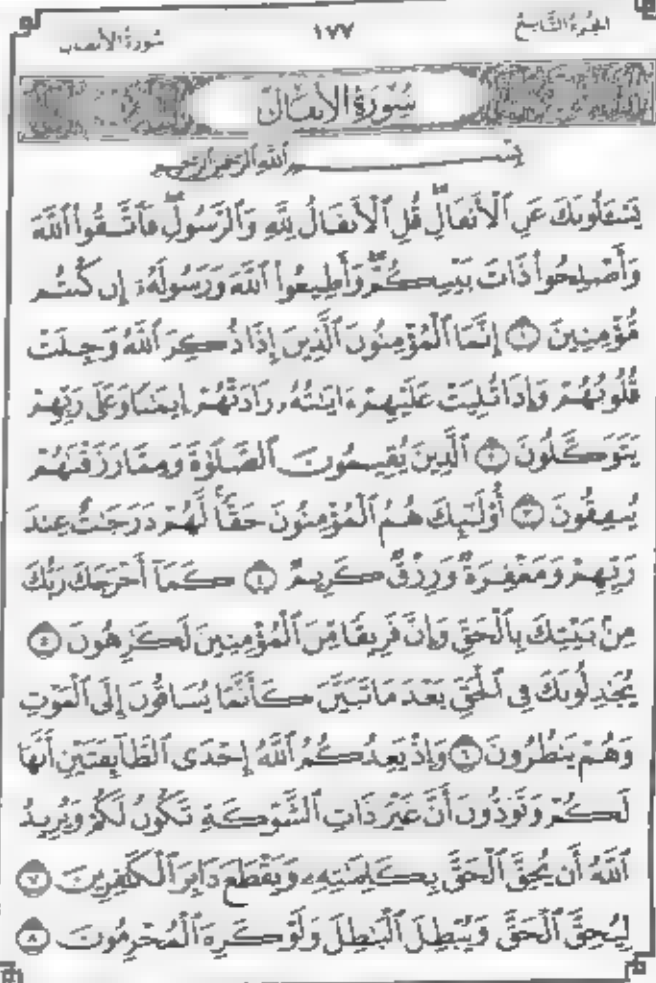 الجزء التاسع ١٧٧ سورة الأنفال
سُورَةُ الأَنفَالِ
بِسْمِ ٱللَّهِ ٱلرَّحْمَٰنِ ٱلرَّحِيمِ
يَسْـَٔلُونَكَ عَنِ ٱلْأَنفَالِۖ قُلِ ٱلْأَنفَالُ لِلَّهِ وَٱلرَّسُولِۖ فَٱتَّقُوا۟ ٱللَّهَ
وَأَصْلِحُوا۟ ذَاتَ بَيْنِكُمْۖ وَأَطِيعُوا۟ ٱللَّهَ وَرَسُولَهُۥٓ إِن كُنتُم
مُّؤْمِنِينَ ١ إِنَّمَا ٱلْمُؤْمِنُونَ ٱلَّذِينَ إِذَا ذُكِرَ ٱللَّهُ وَجِلَتْ
قُلُوبُهُمْ وَإِذَا تُلِيَتْ عَلَيْهِمْ ءَايَٰتُهُۥ زَادَتْهُمْ إِيمَٰنًا وَعَلَىٰ رَبِّهِمْ
يَتَوَكَّلُونَ ٢ ٱلَّذِينَ يُقِيمُونَ ٱلصَّلَوٰةَ وَمِمَّا رَزَقْنَٰهُمْ
يُنفِقُونَ ٣ أُو۟لَٰٓئِكَ هُمُ ٱلْمُؤْمِنُونَ حَقًّاۚ لَّهُمْ دَرَجَٰتٌ عِندَ
رَبِّهِمْ وَمَغْفِرَةٌ وَرِزْقٌ كَرِيمٌ ٤ كَمَآ أَخْرَجَكَ رَبُّكَ
مِنۢ بَيْتِكَ بِٱلْحَقِّ وَإِنَّ فَرِيقًا مِّنَ ٱلْمُؤْمِنِينَ لَكَٰرِهُونَ ٥
يُجَٰدِلُونَكَ فِى ٱلْحَقِّ بَعْدَ مَا تَبَيَّنَ كَأَنَّمَا يُسَاقُونَ إِلَى ٱلْمَوْتِ
وَهُمْ يَنظُرُونَ ٦ وَإِذْ يَعِدُكُمُ ٱللَّهُ إِحْدَى ٱلطَّآئِفَتَيْنِ أَنَّهَا
لَكُمْ وَتَوَدُّونَ أَنَّ غَيْرَ ذَاتِ ٱلشَّوْكَةِ تَكُونُ لَكُمْ وَيُرِيدُ
ٱللَّهُ أَن يُحِقَّ ٱلْحَقَّ بِكَلِمَٰتِهِۦ وَيَقْطَعَ دَابِرَ ٱلْكَٰفِرِينَ ٧
لِيُحِقَّ ٱلْحَقَّ وَيُبْطِلَ ٱلْبَٰطِلَ وَلَوْ كَرِهَ ٱلْمُجْرِمُونَ ٨